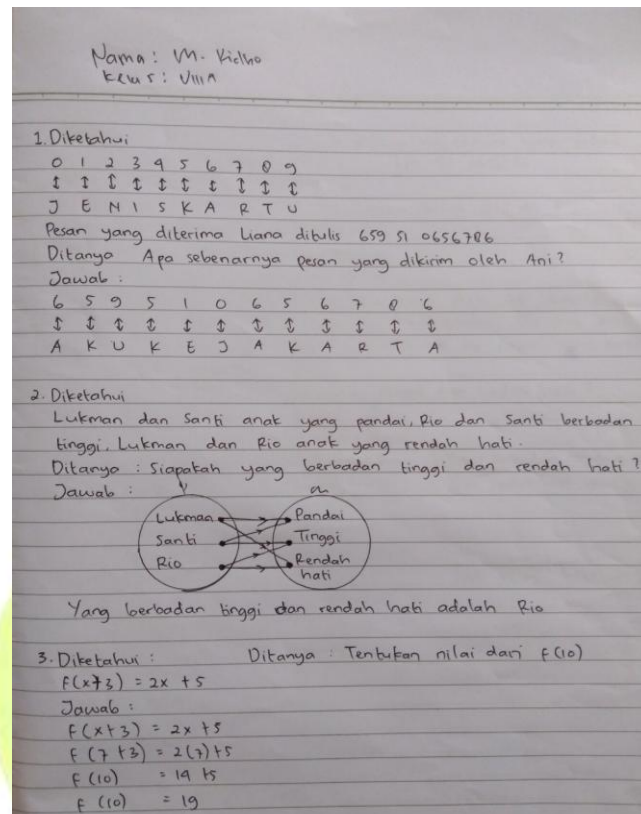 Nama : M. Ridho
Kelas : VIII A
1. Diketahui
0 1 2 3 4 5 6 7 8 9
↕ ↕ ↕ ↕ ↕ ↕ ↕ ↕ ↕ ↕
J E N I S K A R T U
Pesan yang diterima Liana ditulis 659 51 0656786
Ditanya Apa sebenarnya pesan yang dikirim oleh Ani?
Jawab :
6 5 9 5 1 0 6 5 6 7 8 6
↕ ↕ ↕ ↕ ↕ ↕ ↕ ↕ ↕ ↕ ↕ ↕
A K U K E J A K A R T A
2. Diketahui
Lukman dan Santi anak yang pandai, Rio dan Santi berbadan
tinggi, Lukman dan Rio anak yang rendah hati.
Ditanya : Siapakah yang berbadan tinggi dan rendah hati ?
Jawab :
Lukman Pandai
Santi Tinggi
Rio Rendah
hati
Yang berbadan tinggi dan rendah hati adalah Rio
3. Diketahui : Ditanya : Tentukan nilai dari f(10)
f(x+3) = 2x + 5
Jawab :
f(x+3) = 2x +5
f (7 +3) = 2(7)+5
f (10) = 14 +5
f (10) = 19